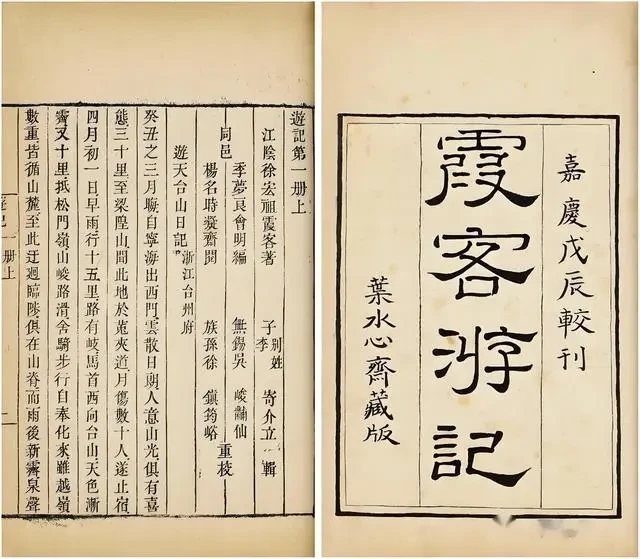 嘉慶戊辰較刊
霞客游記
葉水心齋藏版
遊記第一册上
江陰徐宏祖霞客著 子李别姓寄介立輯
同邑
季夢良會明編 無錫吳峻黼仙
重校
楊名時凝齋閱 族孫徐鎮筠峪
遊天台山日記 浙江台州府
癸丑之三月晦自寧海出西門雲散日朗人意山光俱有喜
態三十里至梁隍山聞此地於菟夾道月傷數十人遂止宿
四月初一日早雨行十五里路有岐馬首西向台山天色漸
霽又十里抵松門嶺山峻路滑舍騎步行自奉化來雖越嶺
數重皆循山麓至此迂迴臨陟俱在山脊而雨後新霽泉聲
遊記一册上
一